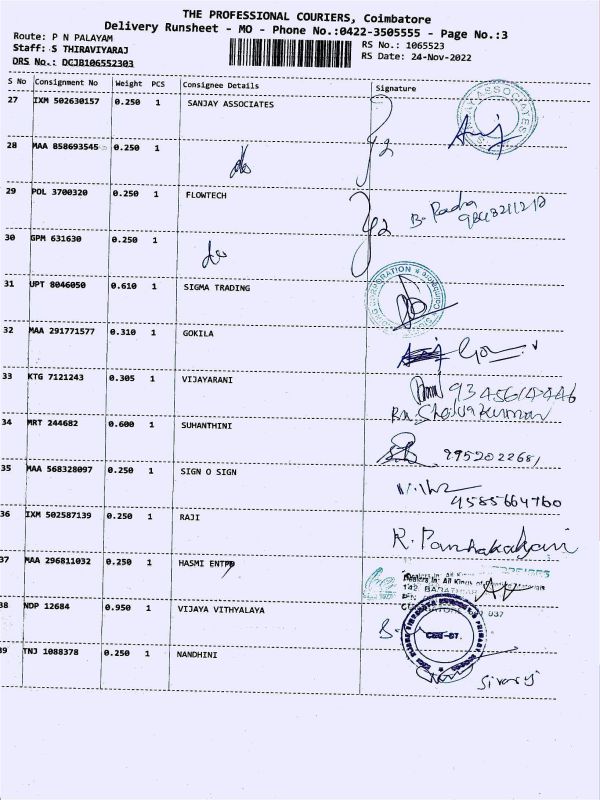 THE PROFESSIONAL COURIERS, Coimbatore
Delivery Runsheet - MO - Phone No.:0422-3505555 - Page No.:3
Route: P N PALAYAM
RS No.: 1065523
Staff: S THIRAVIYARAJ
RS Date: 24-Nov-2022
DRS No.: DCJB106552303
S No Consignment No Weight PCS Consignee Details Signature
27 IXM 502630157 0.250 1 SANJAY ASSOCIATES
28 MAA 858693545 0.250 1 do
29 POL 3700320 0.250 1 FLOWTECH
B. Radha
30 GPM 631630 0.250 1 do
31 UPT 8046050 0.610 1 SIGMA TRADING
32 MAA 291771577 0.310 1 GOKILA
33 KTG 7121243 0.305 1 VIJAYARANI
34 MRT 244682 0.600 1 SUHANTHINI
35 MAA 568328097 0.250 1 SIGN O SIGN
9585664760
36 IXM 502587139 0.250 1 RAJI
37 MAA 296811032 0.250 1 HASMI ENTP
Dealers In: All Kinds of
142, BARATHIAR
38 NDP 12684 0.950 1 VIJAYA VITHYALAYA
CBE-37
39 TNJ 1088378 0.250 1 NANDHINI
Sivaraj